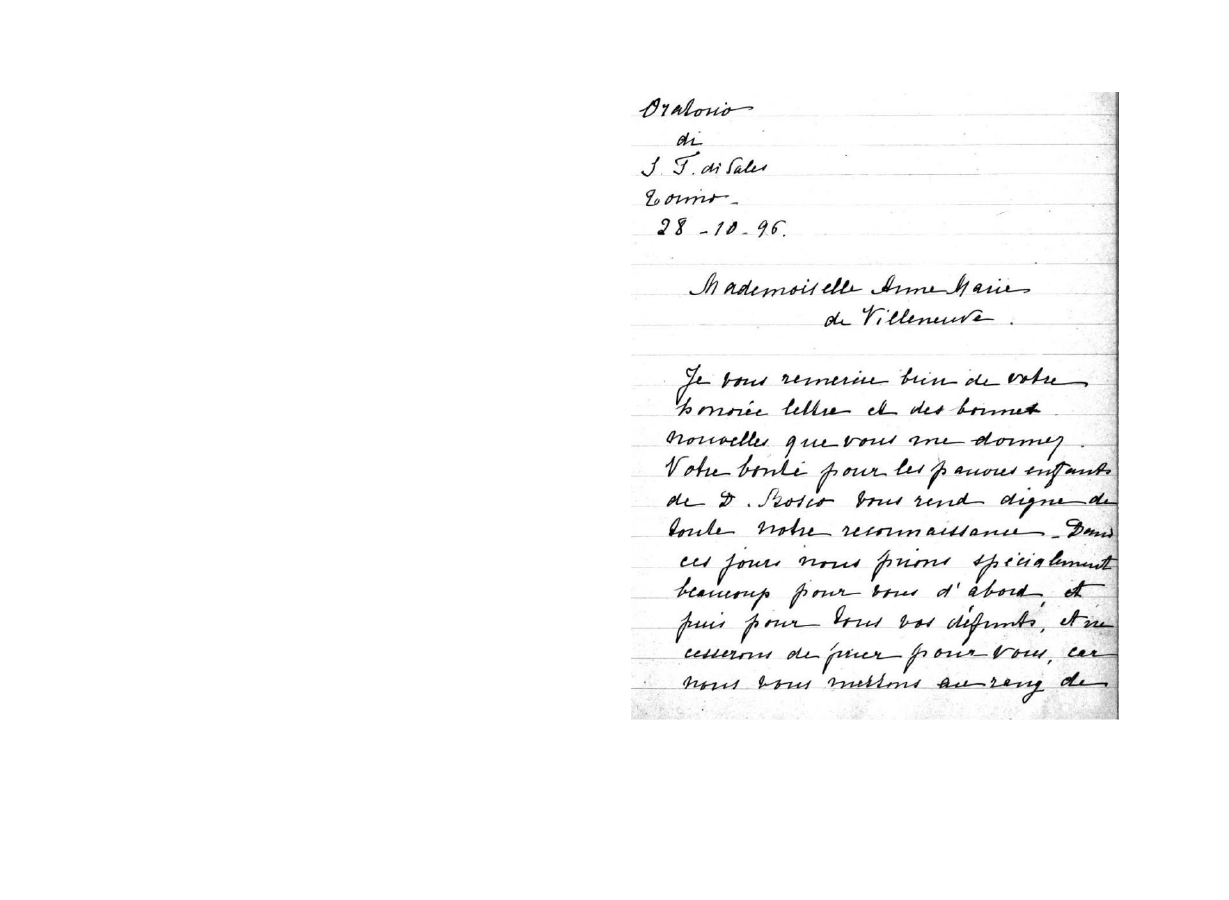 Oratorio
di
S. F. di Sales
Torino -
28 - 10 - 96.
Mademoiselle Anne Marie
de Villeneuve.
Je vous remercie bien de votre
honorée lettre et des bonnes
nouvelles que vous me donnez.
Votre bonté pour les pauvres enfants
de D. Bosco vous rend digne de
toute notre reconnaissance - Dans
ces jours nous prions spécialement
beaucoup pour vous d'abord et
puis pour tous vos défunts, et ne
cesserons de prier pour vous, car
nous vous mettons au rang de